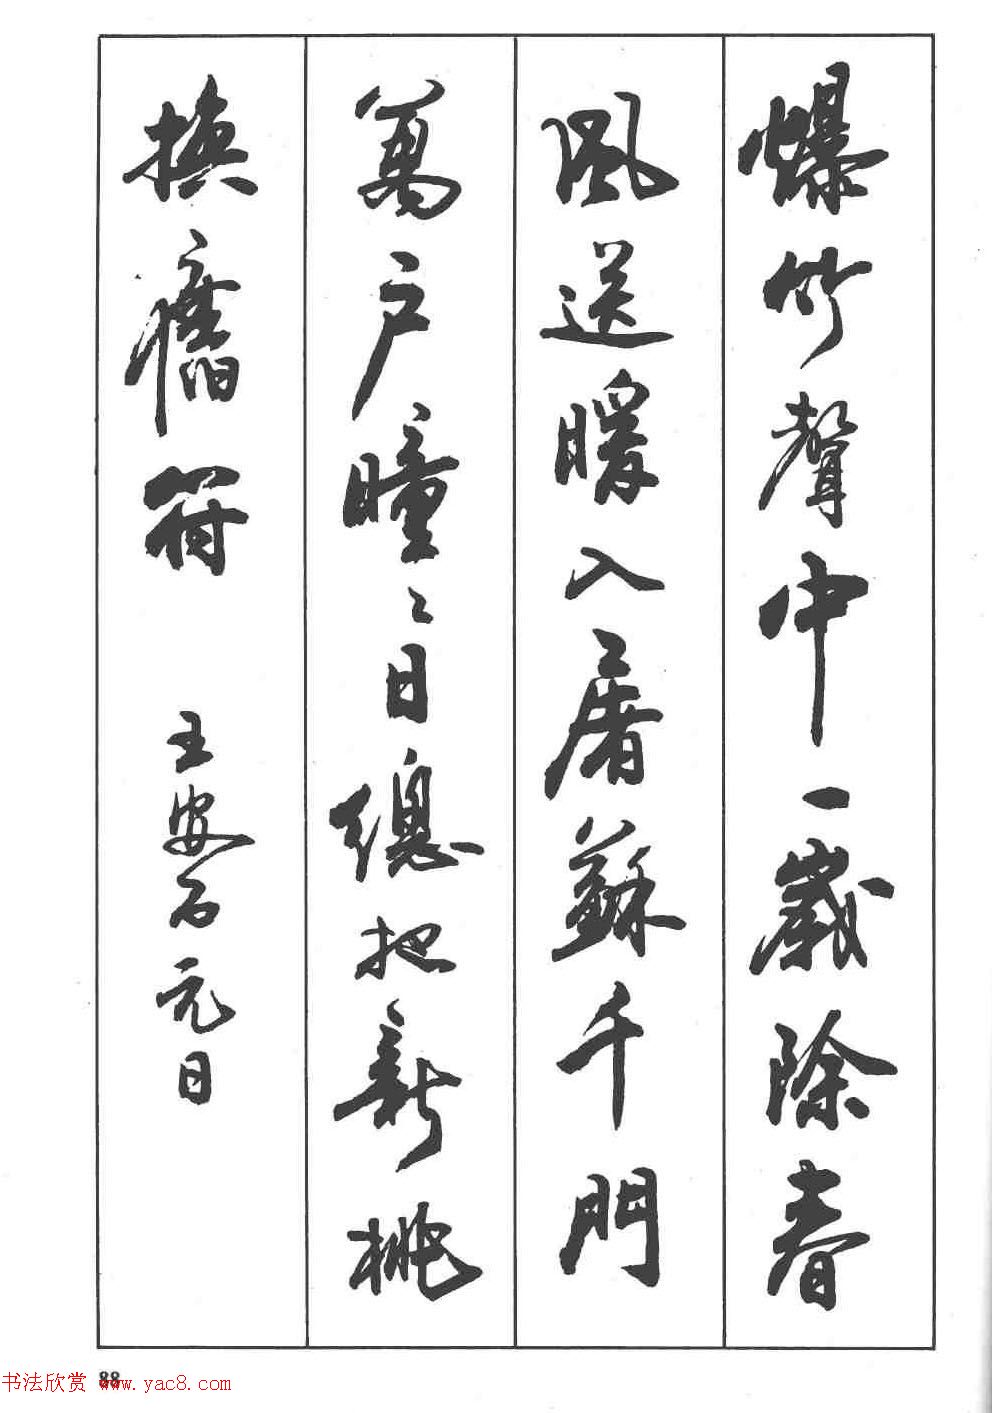 爆竹聲中一歲除春
風送暖入屠蘇千門
萬户曈〻日總把新桃
換舊符 王安石元日
88
书法欣赏 www.yac8.com